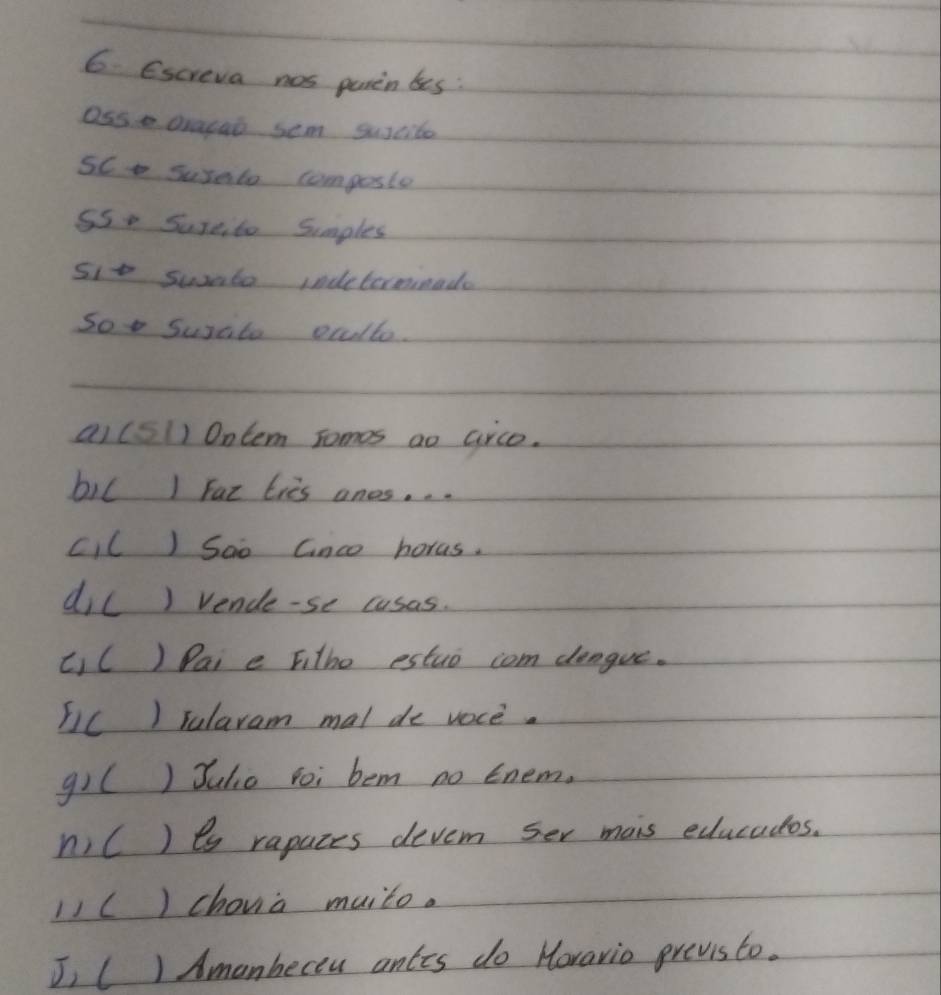 6- Escreva nos parênteses:
OSS → Oração sem sujeito
SC → Sujeito composto
SS → Sujeito Simples
SI → Sujeito indeterminado
SO → Sujeito oculto.
a) (SI) Ontem fomos ao circo.
b) ( ) Faz três anos...
c) ( ) São Cinco horas.
d) ( ) Vende-se casas.
e) ( ) Pai e Filho estão com dengue.
f) ( ) Falaram mal de você.
g) ( ) Julio foi bem no Enem.
h) ( ) Os rapazes devem ser mais educados.
i) ( ) Chovia muito.
J) ( ) Amanheceu antes do Horario previsto.